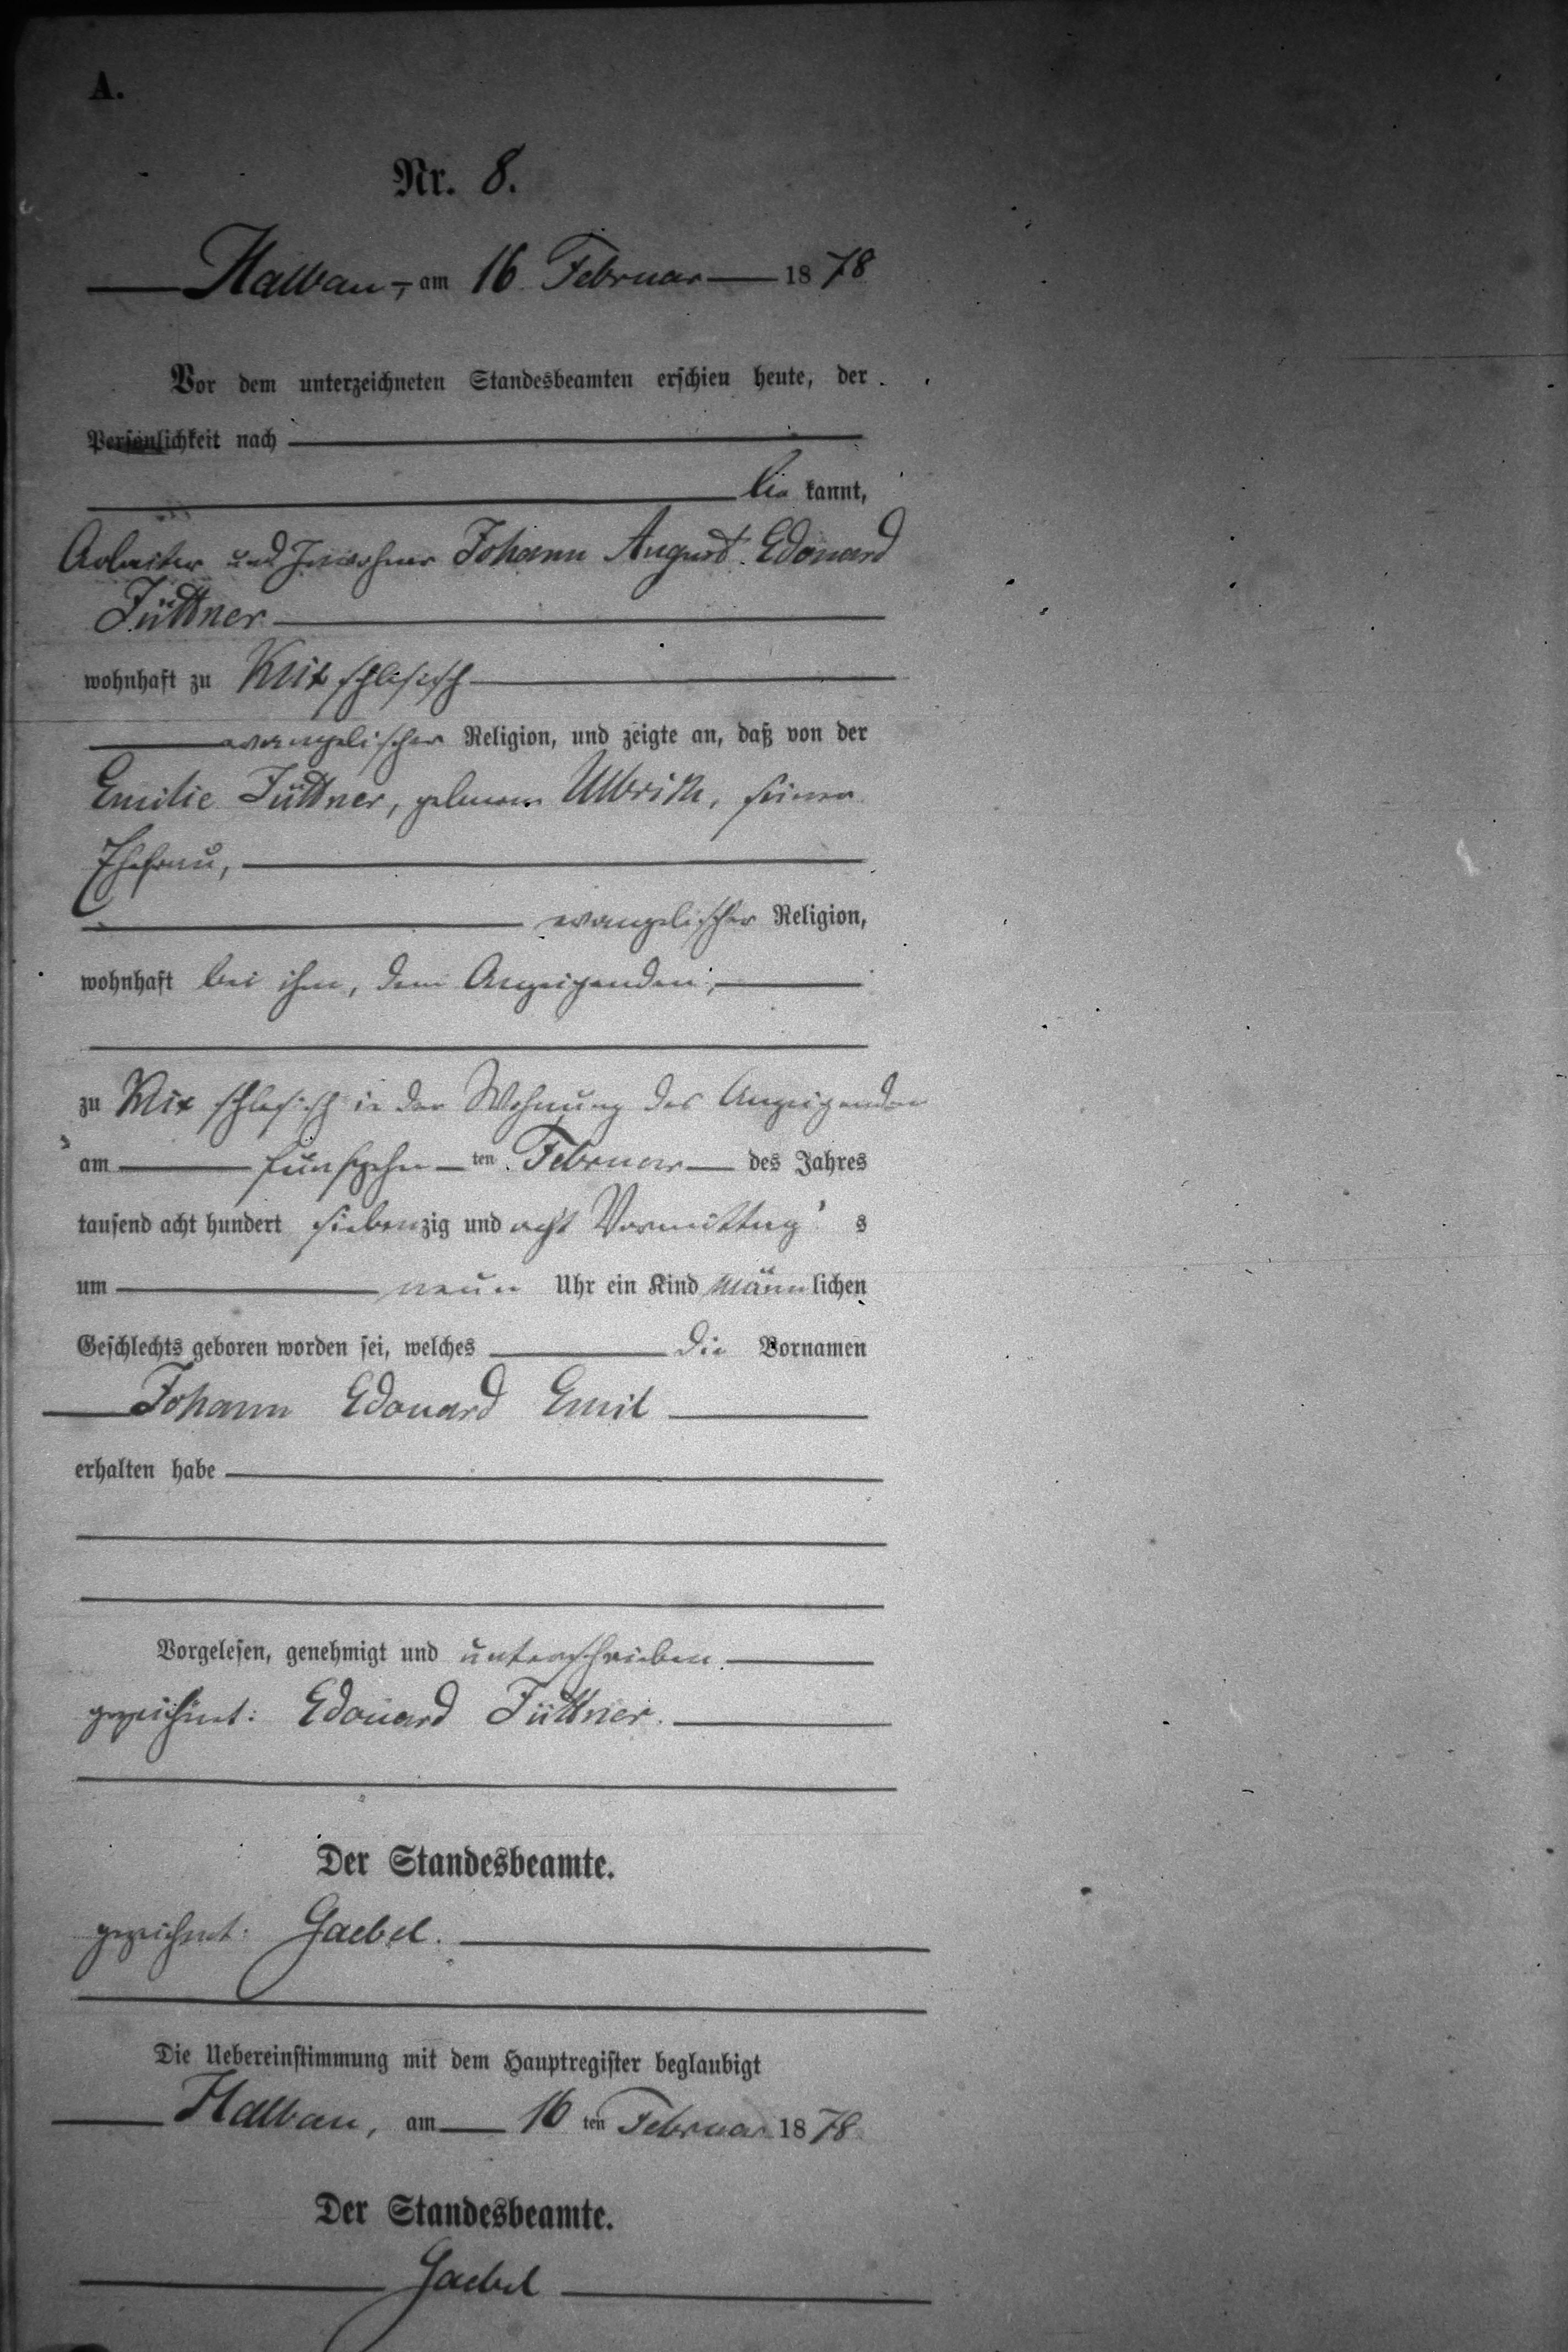 A.
Nr. 8.
Halbau, am 16. Februar 1878
Vor dem unterzeichneten Standesbeamten erschien heute, der
Persönlichkeit nach
be kannt,
Arbeiter und Inwohner Johann August Edouard
Jüttner
wohnhaft zu Klix schlesisch
evangelischer Religion, und zeigte an, daß von der
Emilie Jüttner, geborene Ulbrich, seiner
Ehefrau,
evangelischer Religion,
wohnhaft bei ihm, dem Anzeigenden,
zu Klix schlesisch in der Wohnung des Anzeigenden
am fünfzehn ten Februar des Jahres
tausend acht hundert siebenzig und acht Vormittag s
um neun Uhr ein Kind männlichen
Geschlechts geboren worden sei, welches die Vornamen
Johann Edouard Emil
erhalten habe
Vorgelesen, genehmigt und unterschrieben
gezeichnet: Edouard Jüttner.
Der Standesbeamte.
gezeichnet: Gaebel.
Die Uebereinstimmung mit dem Hauptregister beglaubigt
Halbau, am 16 ten Februar 1878
Der Standesbeamte.
Gaebel